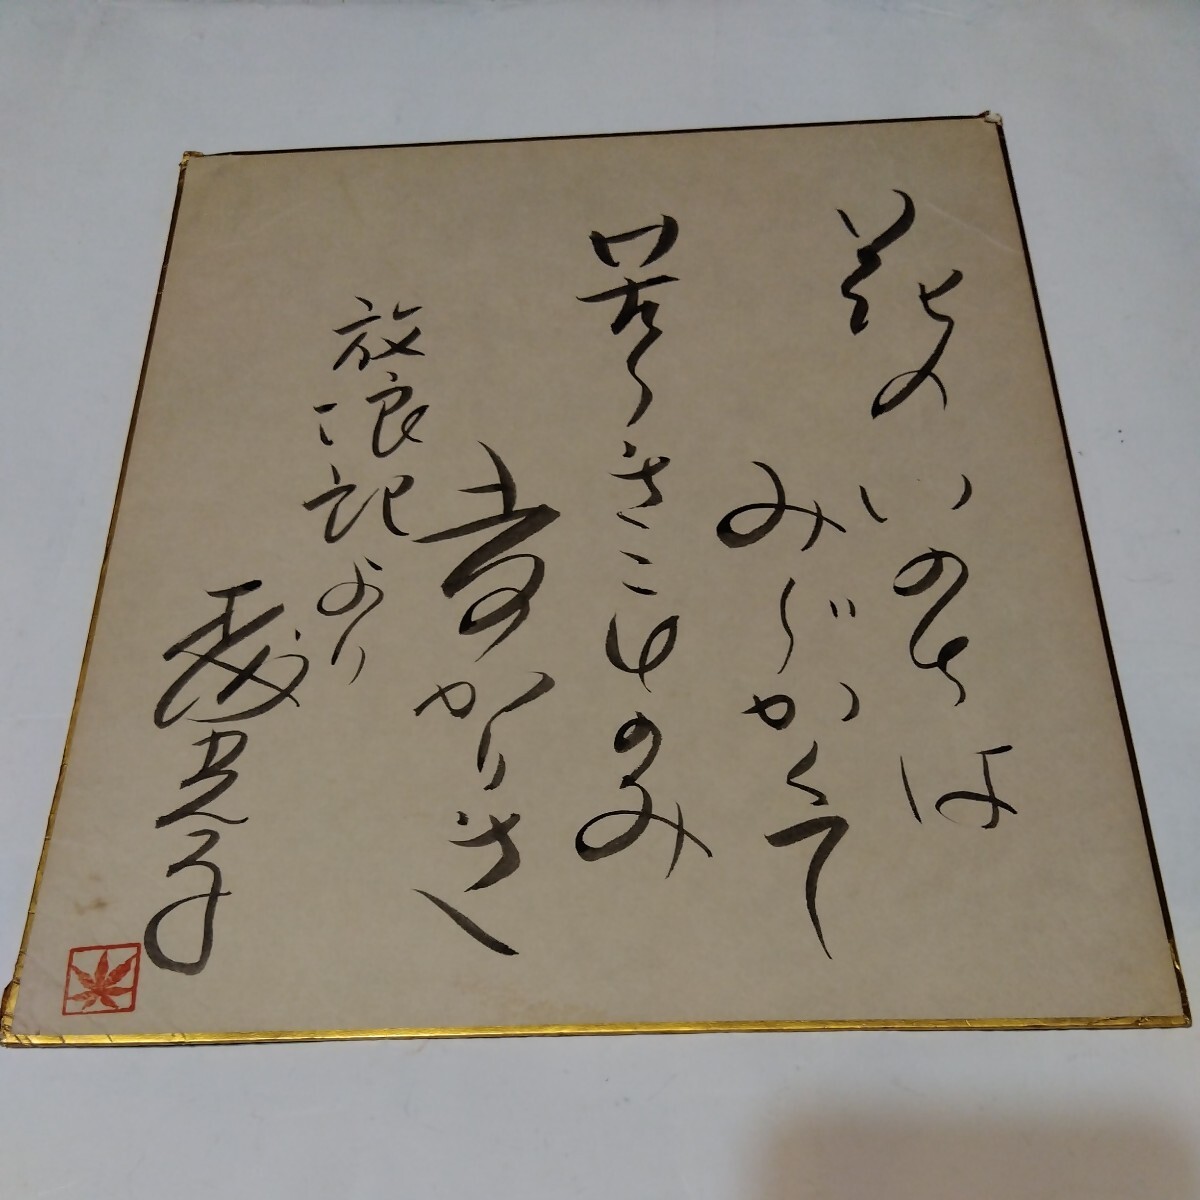 花のいのちは
みぢかくて
苦しきことのみ
多かりき
放浪記より
森光子